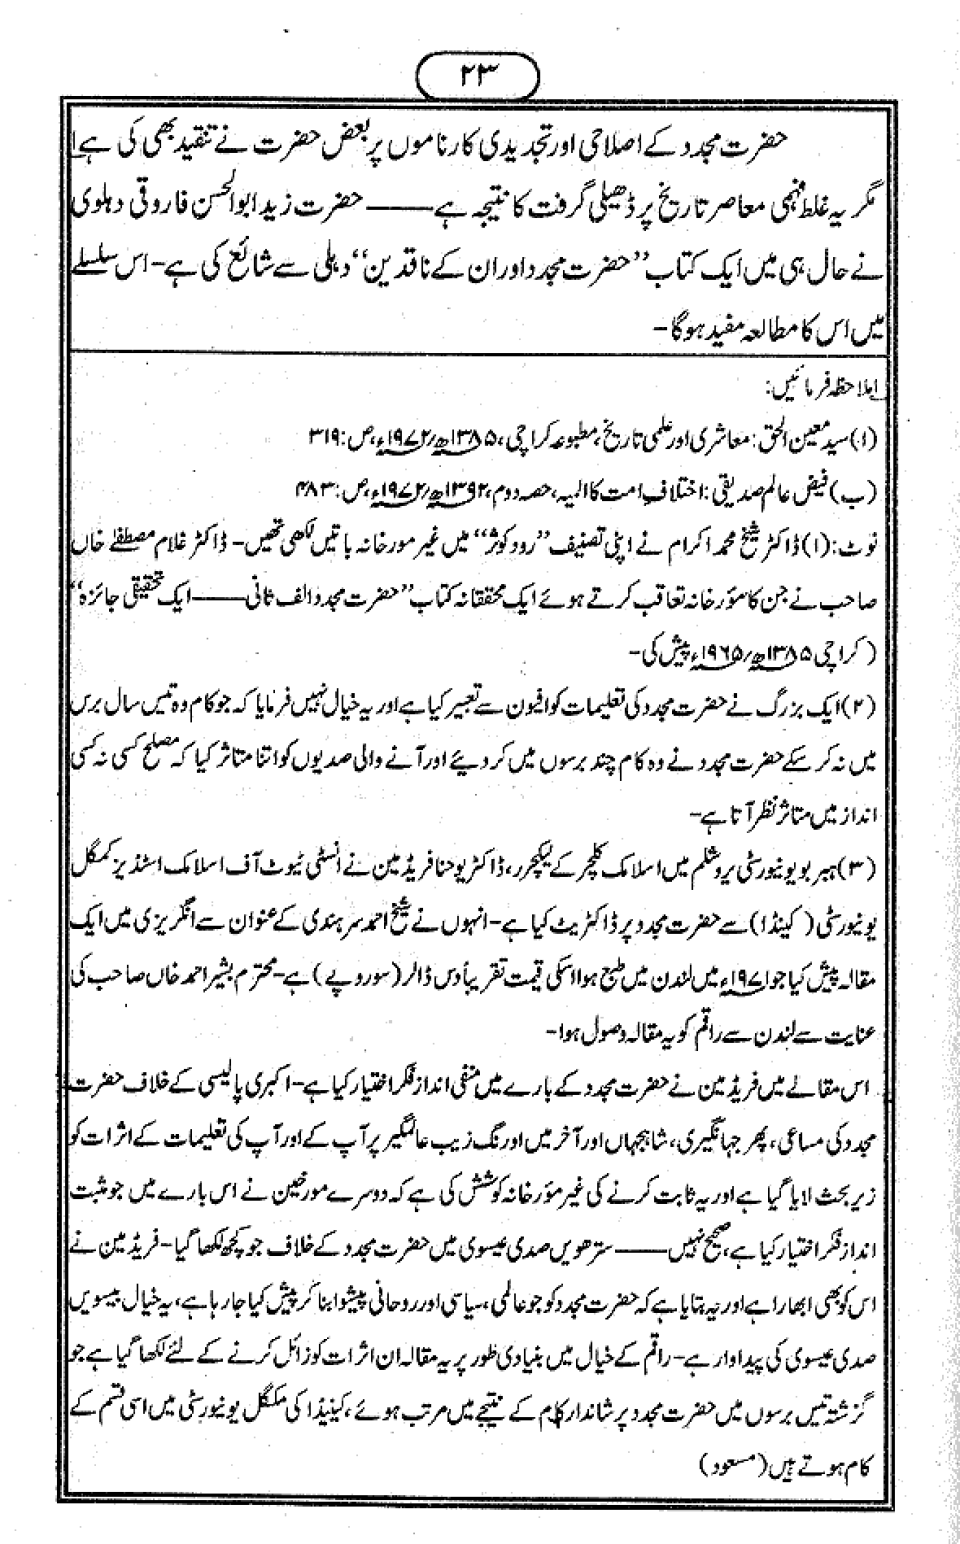 ۲۳
حضرت مجدد کے اصلاحی اور تجدیدی کارناموں پر بعض حضرت نے تنقید بھی کی ہے۱
مگر یہ غلط فہمی معاصر تاریخ پر ڈھیلی گرفت کا نتیجہ ہے —— حضرت زید ابوالحسن فاروقی دہلوی
نے حال ہی میں ایک کتاب "حضرت مجدد اور ان کے ناقدین" دہلی سے شائع کی ہے۔ اس سلسلے
میں اس کا مطالعہ مفید ہوگا۔
۱ ملاحظہ فرمائیں:
(ا) سید معین الحق: معاشری اور علمی تاریخ، مطبوعہ کراچی، ۱۳۸۵ھ/۱۹۷۲ء، ص: ۳۱۹
(ب) فیض عالم صدیقی: اختلاف امت کا المیہ، حصہ دوم، ۱۳۹۲ھ/۱۹۷۲ء، ص: ۴۸۳
نوٹ: (۱) ڈاکٹر شیخ محمد اکرام نے اپنی تصنیف "رود کوثر" میں غیر مورخانہ باتیں لکھی تھیں۔ ڈاکٹر غلام مصطفےٰ خاں
صاحب نے جن کا مؤرخانہ تعاقب کرتے ہوئے ایک محققانہ کتاب "حضرت مجدد الف ثانی —— ایک تحقیقی جائزہ"
(کراچی ۱۳۸۵ھ/۱۹۶۵ء پیش کی۔
(۲) ایک بزرگ نے حضرت مجدد کی تعلیمات کو افیون سے تعبیر کیا ہے اور یہ خیال نہیں فرمایا کہ جو کام وہ تیس سال برس
میں نہ کر سکے حضرت مجدد نے وہ کام چند برسوں میں کر دیئے اور آنے والی صدیوں کو اتنا متاثر کیا کہ مصلح کسی نہ کسی
انداز میں متاثر نظر آتا ہے۔
(۳) ہبریو یونیورسٹی یروشلم میں اسلامک کلچر کے لیکچرر، ڈاکٹر یوحنا فریڈمین نے انسٹی ٹیوٹ آف اسلامک اسٹڈیز کمگل
یونیورسٹی (کینڈا) سے حضرت مجدد پر ڈاکٹریٹ کیا ہے۔ انہوں نے شیخ احمد سرہندی کے عنوان سے انگریزی میں ایک
مقالہ پیش کیا جو ۱۹۷۱ء میں لندن میں طبع ہوا اسکی قیمت تقریباً دس ڈالر (سو روپے) ہے۔ محترم بشیر احمد خاں صاحب کی
عنایت سے لندن سے راقم کو یہ مقالہ وصول ہوا۔
اس مقالے میں فریڈمین نے حضرت مجدد کے بارے میں منفی انداز فکر اختیار کیا ہے۔ اکبری پالیسی کے خلاف حضرت
مجدد کی مساعی، پھر جہانگیری، شاہجہاں اور آخر میں اورنگ زیب عالمگیر پر آپ کے اور آپ کی تعلیمات کے اثرات کو
زیر بحث لایا گیا ہے اور یہ ثابت کرنے کی غیر مؤرخانہ کوشش کی ہے کہ دوسرے مورخین نے اس بارے میں جو مثبت
انداز فکر اختیار کیا ہے، صحیح نہیں —— سترھویں صدی عیسوی میں حضرت مجدد کے خلاف جو کچھ لکھا گیا۔ فریڈمین نے
اس کو بھی ابھارا ہے اور یہ بتایا ہے کہ حضرت مجدد کو جو عالمی، سیاسی اور روحانی پیشوا بنا کر پیش کیا جا رہا ہے، یہ خیال بیسویں
صدی عیسوی کی پیداوار ہے۔ راقم کے خیال میں بنیادی طور پر یہ مقالہ ان اثرات کو زائل کرنے کے لئے لکھا گیا ہے جو
گزشتہ تیس برسوں میں حضرت مجدد پر شاندار کام کے نتیجے میں مرتب ہوئے، کینیڈا کی مکگل یونیورسٹی میں اسی قسم کے
کام ہوتے ہیں (مسعود)